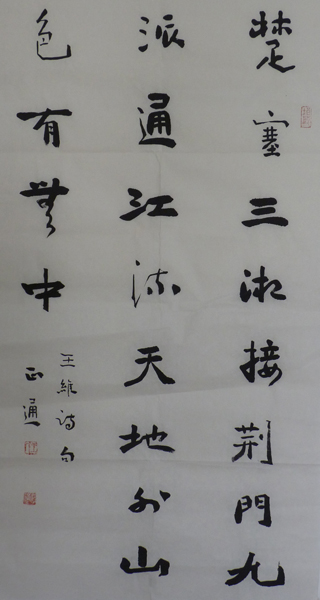 楚塞三湘接荆門九
派通江流天地外山
色有無中
王維詩句
正通